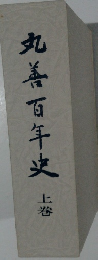 丸善百年史
上巻